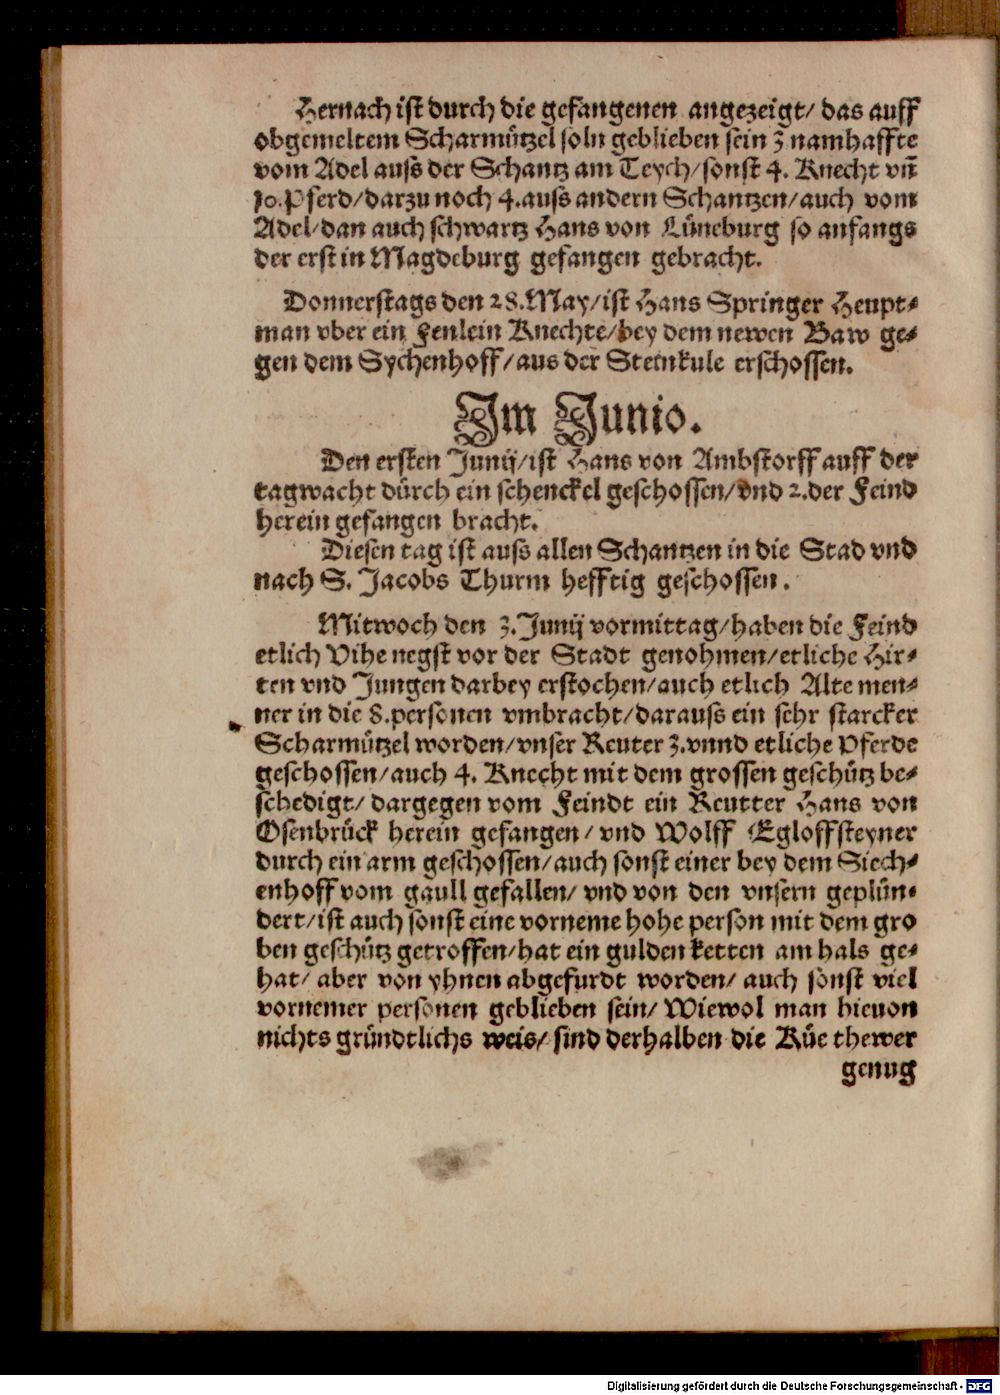 Hernach ist durch die gefangenen angezeigt/ das auff
obgemeltem Scharmützel soln geblieben sein 3 namhaffte
vom Adel auss der Schantz am Teych/sonst 4. Knecht vn̄
10.Pferd/darzu noch 4.auss andern Schantzen/auch vom
Adel/dan auch schwartz Hans von Lüneburg so anfangs
der erst in Magdeburg gefangen gebracht.
Donnerstags den 28.May/ist Hans Springer Heupt-
man vber ein Fenlein Knechte/bey dem newen Baw ge-
gen dem Sychenhoff/aus der Steinkule erschossen.
Im Junio.
Den ersten Junij/ist Hans von Ambstorff auff der
tagwacht dürch ein schenckel geschossen/vnd 2.der Feind
herein gefangen bracht.
Diesen tag ist auss allen Schantzen in die Stad vnd
nach S. Jacobs Thurm hefftig geschossen.
Mitwoch den 3.Junij vormittag/haben die Feind
etlich Vihe negst vor der Stadt genohmen/etliche Hir-
ten vnd Jungen darbey erstochen/auch etlich Alte men-
ner in die 8.personen vmbracht/darauss ein sehr starcker
Scharmützel worden/vnser Reuter 3.vnnd etliche Pferde
geschossen/auch 4. Knecht mit dem grossen geschütz be-
schedigt/ dargegen vom Feindt ein Reutter Hans von
Osenbrück herein gefangen/ vnd Wolff Egloffsteyner
durch ein arm geschossen/auch sonst einer bey dem Siech-
enhoff vom gaull gefallen/ vnd von den vnsern geplün-
dert/ist auch sonst eine vorneme hohe person mit dem gro
ben geschütz getroffen/hat ein gulden ketten am hals ge-
hat/ aber von yhnen abgefurdt worden/ auch sonst viel
vornemer personen geblieben sein/ Wiewol man hieuon
nichts gründtlichs weis/ sind derhalben die Küe thewer
genug
Digitalisierung gefördert durch die Deutsche Forschungsgemeinschaft - DFG